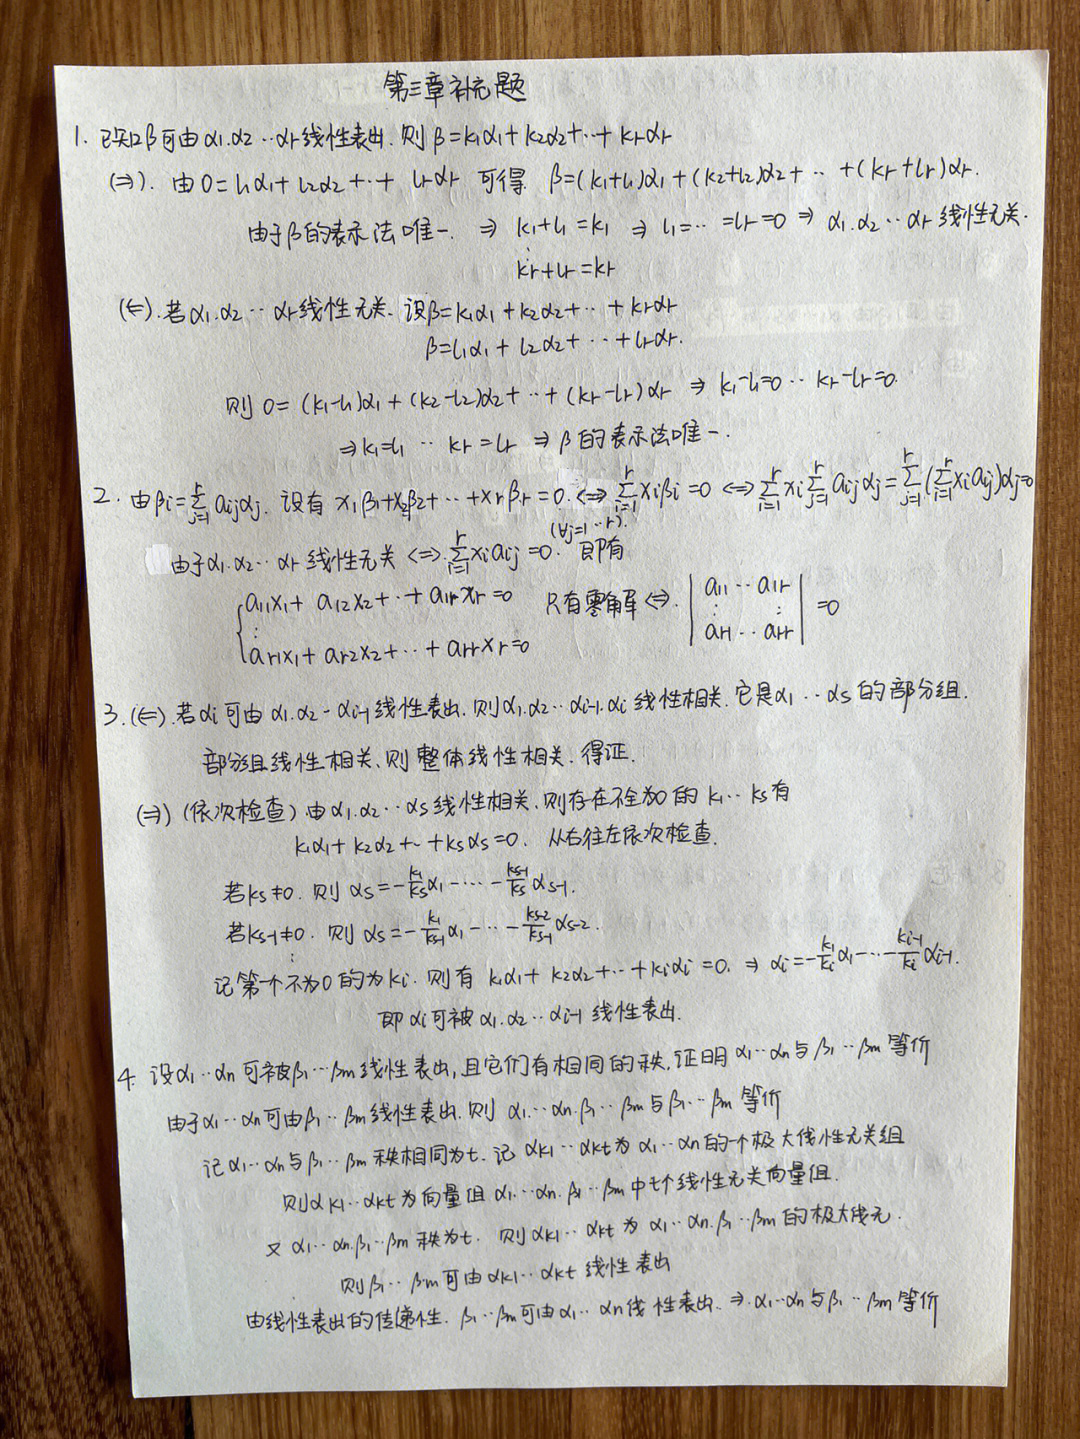 第三章补充题
1. 已知β可由α1.α2…αr线性表出.则 β=k1α1+k2α2+…+krαr
(⇒). 由 0=l1α1+l2α2+…+lrαr 可得. β=(k1+l1)α1+(k2+l2)α2+…+(kr+lr)αr.
由于β的表示法唯一. ⇒ k1+l1=k1 ⇒ l1=…=lr=0 ⇒ α1.α2…αr 线性无关.
⋮
kr+lr=kr
(⇐).若α1.α2…αr线性无关. 设β=k1α1+k2α2+…+krαr
β=l1α1+l2α2+…+lrαr.
则 0=(k1-l1)α1+(k2-l2)α2+…+(kr-lr)αr ⇒ k1-l1=0…kr-lr=0.
⇒k1=l1 … kr=lr ⇒ β的表示法唯一.
2. 由βi=∑_{j=1}^{r} aijαj. 设有 x1β1+x2β2+…+xrβr=0. ⟺ ∑_{i=1}^{r} xiβi=0 ⟺ ∑_{i=1}^{r} xi ∑_{j=1}^{r} aijαj=∑_{j=1}^{r}(∑_{i=1}^{r} xiaij)αj=0
由于α1.α2…αr 线性无关 ⟺ ∑_{i=1}^{r} xiaij=0. (∀j=1…r). 即有
{a11x1+a12x2+…+a1rxr=0 只有零解 ⟺. |a11…a1r| =0
⋮ ⋮ ⋮
ar1x1+ar2x2+…+arrxr=0 |ar1…arr|
3.(⇐).若αi可由α1.α2-αi-1线性表出.则α1.α2…αi-1.αi 线性相关.它是α1…αs的部分组.
部分组线性相关、则整体线性相关.得证.
(⇒) (依次检查) 由α1.α2…αs线性相关.则存在不全为0的 k1…ks有
k1α1+k2α2+…+ksαs=0. 从右往左依次检查.
若ks≠0. 则 αs=-k1/ks α1-…-ks-1/ks αs-1.
若ks-1≠0. 则 αs=-k1/ks-1 α1-…-ks-2/ks-1 αs-2.
⋮
记第一个不为0的为ki. 则有 k1α1+k2α2+…+kiαi=0. ⇒ αi=-k1/ki α1-…-ki-1/ki αi-1.
即 αi可被 α1.α2…αi-1 线性表出.
4. 设α1…αn可被β1…βm线性表出,且它们有相同的秩,证明 α1…αn与β1…βm 等价
由于α1…αn可由β1…βm线性表出.则 α1…αn.β1…βm与β1…βm 等价
记 α1…αn与β1…βm 秩相同为t. 记 αk1…αkt为 α1…αn的一个极大线性无关组
则αk1…αkt为向量组 α1…αn.β1…βm中t个线性无关向量组.
又 α1…αn.β1…βm 秩为t. 则αk1…αkt 为 α1…αn.β1…βm的极大线无.
则β1…βm可由αk1…αkt 线性表出
由线性表出的传递性. β1…βm可由α1…αn线性表出. ⇒. α1…αn与β1…βm 等价